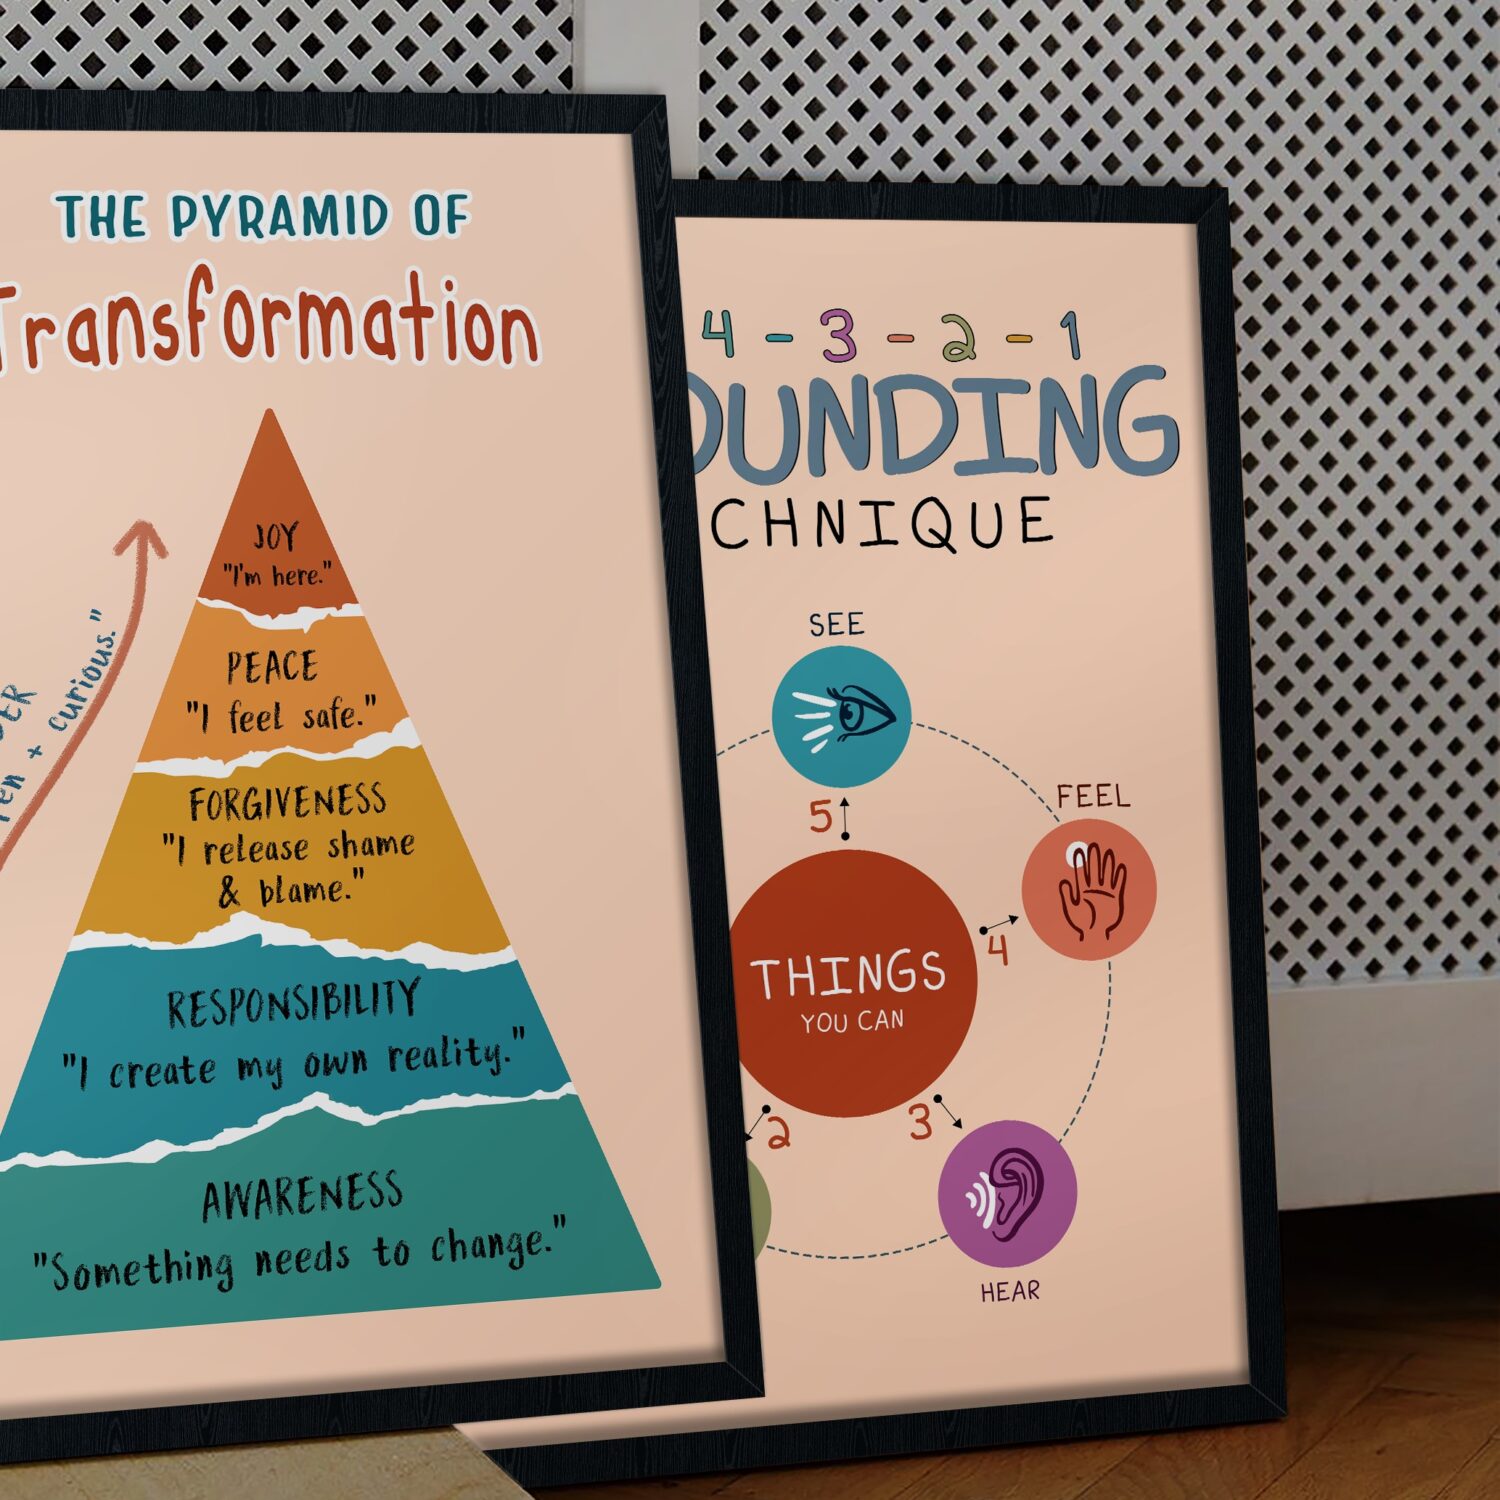 THE PYRAMID OF
Transformation
JOY
"I'm here."
PEACE
"I feel safe."
FORGIVENESS
"I release shame
& blame."
RESPONSIBILITY
"I create my own reality."
AWARENESS
"Something needs to change."
+ curious."
4 - 3 - 2 - 1
OUNDING
CHNIQUE
SEE
5
FEEL
4
THINGS
YOU CAN
3
2
HEAR